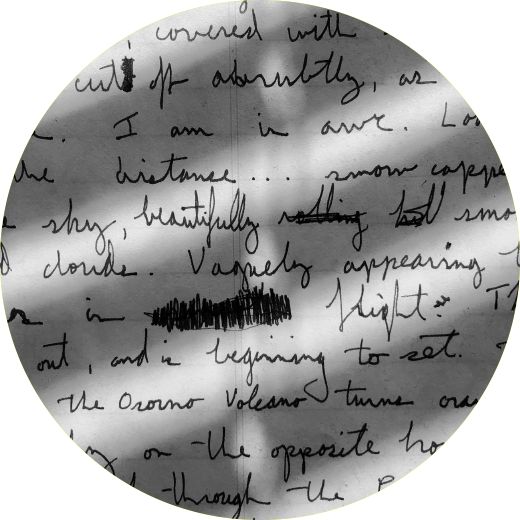 covered with
cut off abruptly, as
I am in awe.
distance... snow cappe
sky, beautifully rolling
clouds. Vaguely appearing
in flight.
out, and is beginning to set.
the Osorno Volcano turns
on the opposite ho
through the P